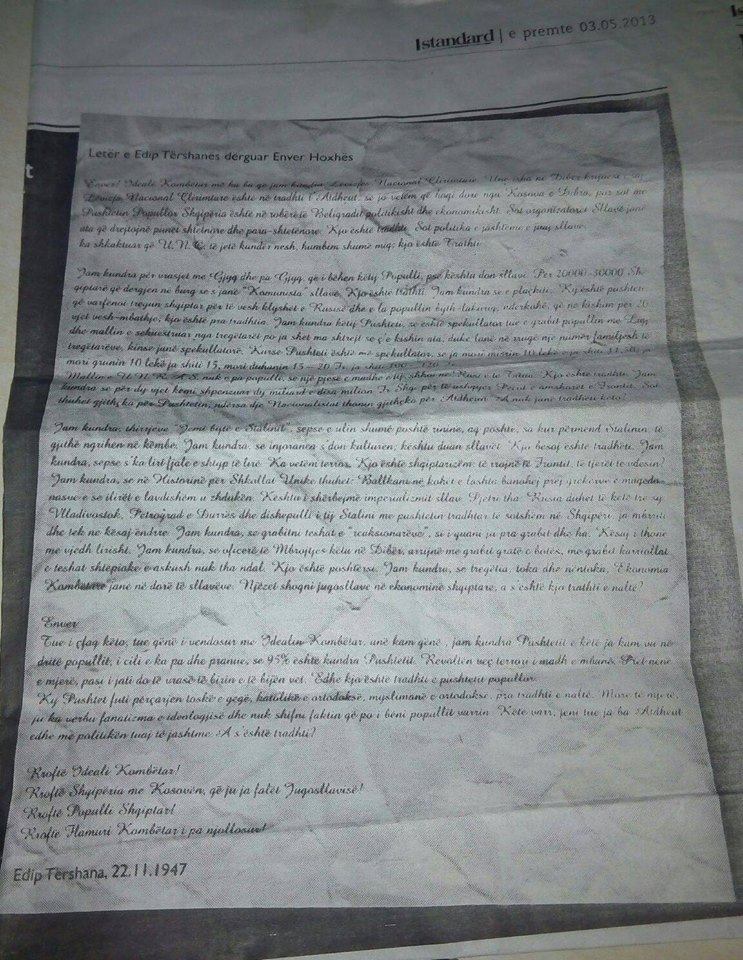 Istandard | e premte 03.05.2013
Is
t
Letër e Edip Tërshanës dërguar Enver Hoxhës
Enver! Ideali Kombëtar më ka ba që jam kundra Lëvizjes Nacional Çlirimtare. Une isha në Dibër
Lëvizja Nacional Çlirimtare është në tradhti t'Atdheut, se jo vetëm që hoqi dorë nga Kosova e Dibra, por sot me
Pushtetin Popullor Shqipëria është në robërie të Beligradit politikisht dhe ekonomikisht. Sot organizatorët Sllavë janë
ata që drejtojnë punët shtetnore dhe para-shtetënore. Kjo është tradhti. Sot politika e jashtëme e juaj sllave,
ka shkaktuar që U.N.C. të jetë kundër nesh, humbëm shumë miq; kjo është Tradhti.
Jam kundra për vrasjet me Gjyq dhe pa Gjyq, që i bëhen këtij Populli, pse kështu don sllavi. Për 20000-30000 Sh-
qiptarë që dergjen në burg se s'janë "Komunista" sllavë. Kjo është tradhti. Jam kundra se e plaçkiti. Kj është pushteti
që varfënou tregun shqiptar për të vesh klyshët e Rusisë dhe e la popullin byth-lakuriq, ndërkohë, që ne kishim për 20
vjet vesh-mbathje, kjo është pra tradhtia. Jam kundra këtij Pushteti, se është spekullator tue e grabit popullin me Ligj
dhe mallin e sekuestruar nga tregëtarët po ja shet ma shtrejt se ç'e kishin ata, duke lanë në rrugë një numër familjesh të
tregëtarëve, kinse janë spekullatorë. Kurse Pushteti është më spekullator, se ja mori misrin 10 lekë e ja shiti
mori grunin 10 lekë ja shiti 15, mori duhanin 15 – 20 Fr. ja shiti 100 – 120
Mallin e U.N.R.A.S. nuk e pa populli, se një pjesë e madhe e tij shkoi në Rusi e te Titua. Kjo është tradhti. Jam
kundra se për dy vjet kemi shpenzuar dy miliard e disa milion Fr. Shq. për të ushqyer Perat e amshoret e Frontit. Sot
thuhet gjithçka për Pushtetin, ndërsa dje Nacionalistat thonin gjithçka për Atdheun. A nuk janë tradhëti këto?
Jam kundra, thirrjeve "Jemi bytë e Stalinit", sepse e ulin shumë poshtë rininë, aq poshtë, sa kur përmend Stalinin, të
gjithë ngrihen në këmbë. Jam kundra, se injoranca s'don kulturën; kështu duan sllavët. Kjo besoj është tradhëti. Jam
kundra, sepse s'ka liri fjale e shtyp të lirë. Ka vetëm terror. Kjo është shqiptarizëm: të rrojnë të Frontit, të tjerët të vdesin!
Jam kundra, se në Historinë për Shkollat Unike thuhet: Ballkani në kohët e lashta banohej prej grekorve e maqedo-
nasve dhe se ilirët e lavdishëm u zhdukën. Kështu i shërbejmë imperializmit sllav. Pjetri tha: "Rusia duhet të ketë tre sy
Vladivostok, Petrograd e Durrës dhe dishepulli i tij Stalini me pushtetin tradhtar të sotshëm në Shqipëri, ja mbriti
dhe tek ne kësaj ëndrre. Jam kundra, se grabitni teshat e "reaksionarëve", si i quani ju pra grabit dhe ha. Kësaj i thonë
me vjedh lirisht. Jam kundra, se oficerë të Mbrojtjes këtu në Dibër, arrijnë me grabit gratë e botës, me grabit karriollat
e teshat shtëpiake e askush nuk tha ndal. Kjo është poshtërsi. Jam kundra, se tregëtia, toka dhe nëntoka, Ekonomia
Kombëtare janë në dorë të sllavëve. Njëzet shoqni jugosllave në ekonominë shqiptare, a s'është kjo tradhti e naltë?
Enver
Tue i çfaq këto, tue qënë i vendosur me Idealin Kombëtar, unë kam qenë, jam kundra Pushtetit e këtë ja kam vu në
dritë popullit, i cili e ka pa dhe pranue, se 95% është kundra Pushtetit. Revoltën veç terrori i madh e mbanë. Pret nëne
e mjerë, pasu i jati do të vrasë të birin e të bijën vet. Edhe kjo është tradhti e pushtetit popullor.
Ky Pushtet futi përçarjen toskë e gegë, katolikë e ortodoksë, myslimanë e ortodoksë, pra tradhti e naltë. More të mjerë,
ju ka verbu fanatizma e ideologjisë dhe nuk shifni faktin që po i beni popullit varrin. Këtë varr, jeni tue ja ba Atdheut
edhe me politikën tuaj të jashtme. A s'është tradhti?
Rroftë Ideali Kombëtar!
Rroftë Shqipëria me Kosovën, që ju ja falët Jugosllavisë!
Rroftë Populli Shqiptar!
Rroftë Flamuri Kombëtar i pa njollosur!
Edip Tërshana, 22.11.1947